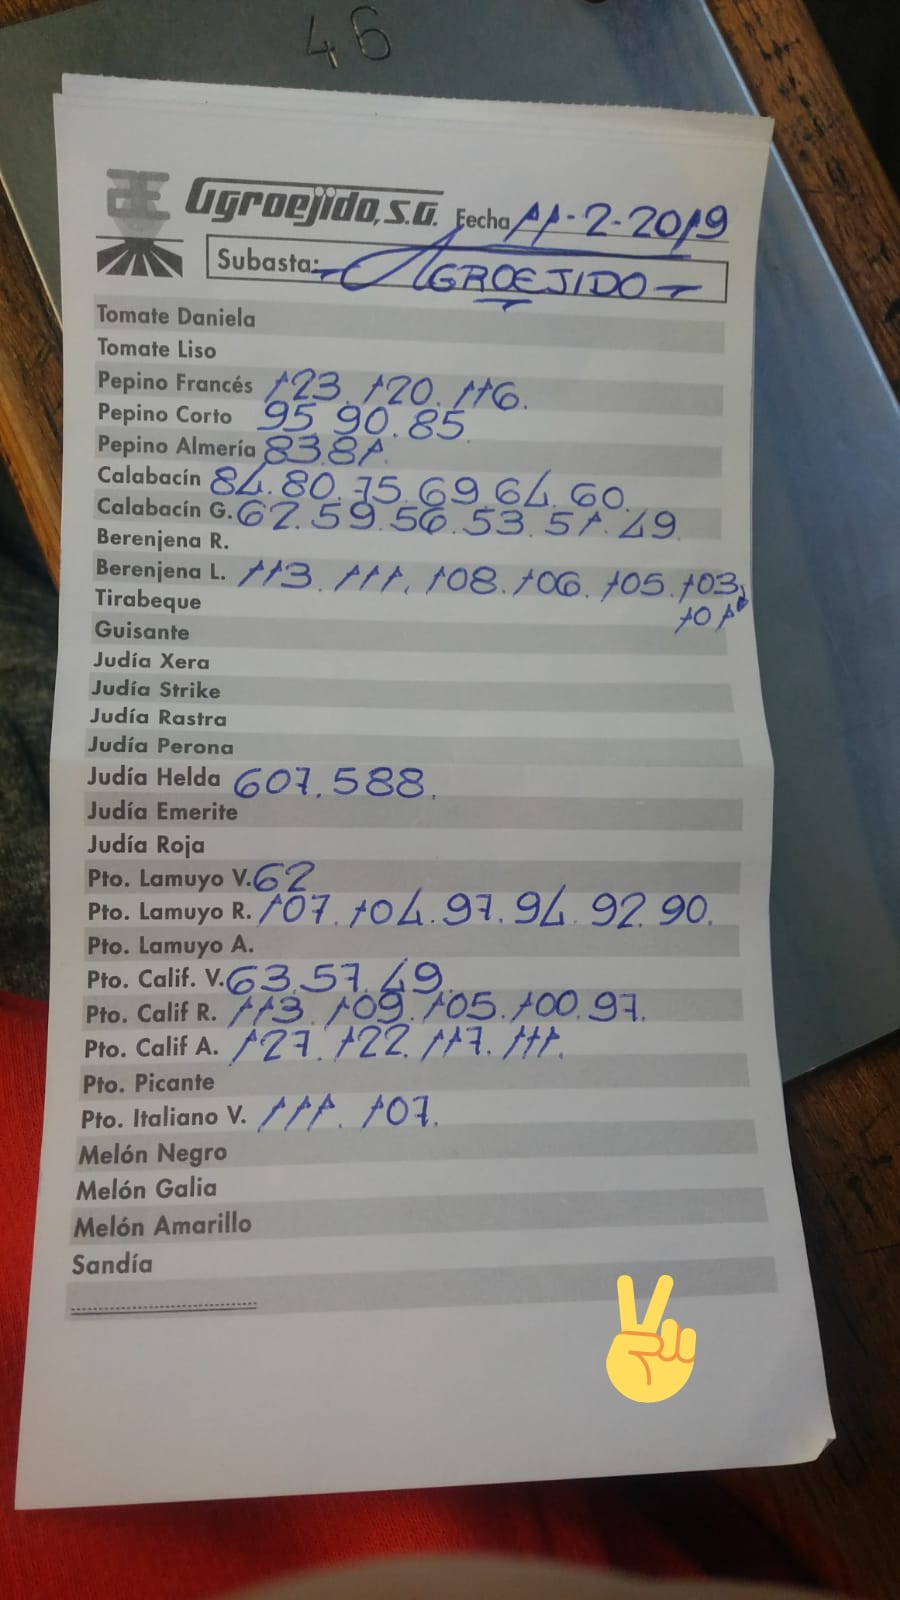 46
Agroejido, S.A. Fecha 11-2-2019
Subasta: AGROEJIDO
Tomate Daniela
Tomate Liso
Pepino Francés 123. 120. 116.
Pepino Corto 95 90. 85
Pepino Almería 83.81.
Calabacín 84. 80. 75. 69. 64. 60.
Calabacín G. 62. 59. 56. 53. 51. 49.
Berenjena R.
Berenjena L. 113. 111. 108. 106. 105. 103.
101
Tirabeque
Guisante
Judía Xera
Judía Strike
Judía Rastra
Judía Perona
Judía Helda 607. 588.
Judía Emerite
Judía Roja
Pto. Lamuyo V. 62
Pto. Lamuyo R. 107. 104. 97. 94. 92. 90.
Pto. Lamuyo A.
Pto. Calif. V. 63. 57. 49.
Pto. Calif R. 113. 109. 105. 100. 97.
Pto. Calif A. 127. 122. 117. 111.
Pto. Picante
Pto. Italiano V. 111. 107.
Melón Negro
Melón Galia
Melón Amarillo
Sandía